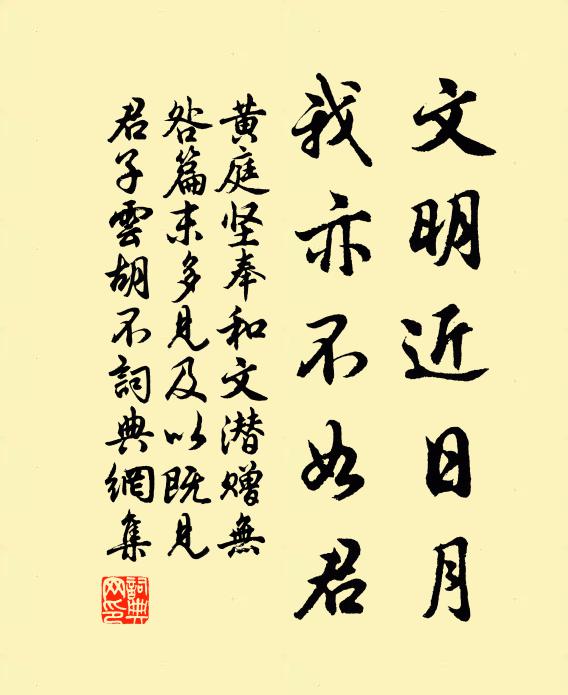 文明近日月
我亦不如君
黄庭坚奉和文潜赠無
咎篇末多見及以既見
君子雲胡不詞典網集
詞典網印